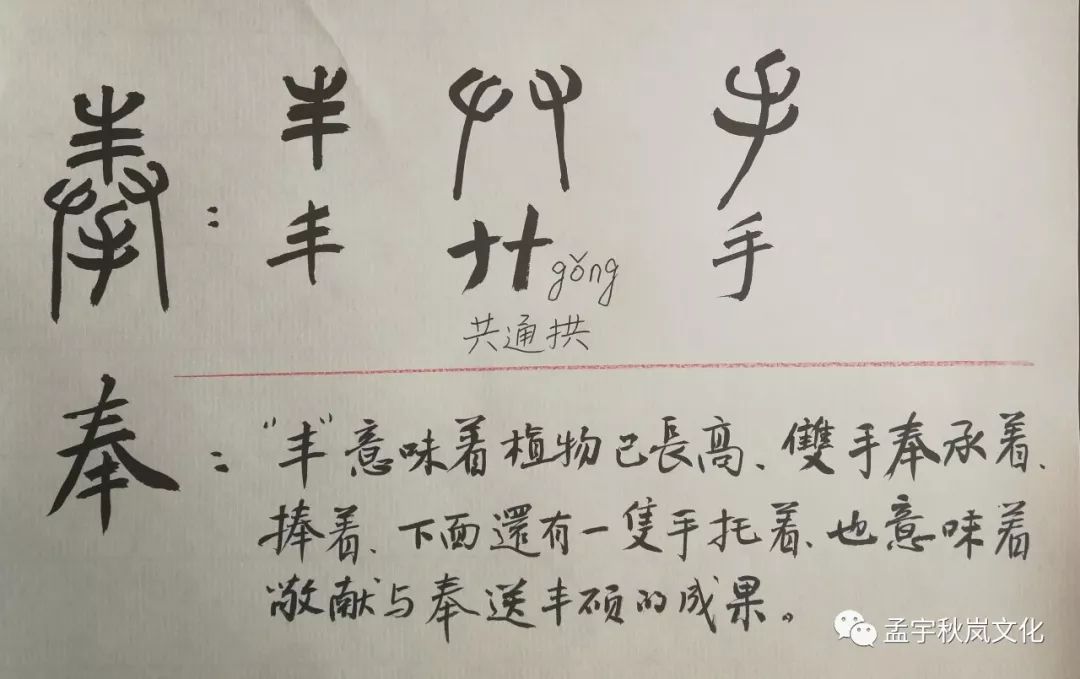 奉：丰 廾 手
丰 廾 gǒng 手
共通拱
奉：“丰”意味着植物已長高、雙手奉承着、
捧着、下面還有一隻手托着、也意味着
敬献与奉送丰硕的成果。
孟宇秋岚文化